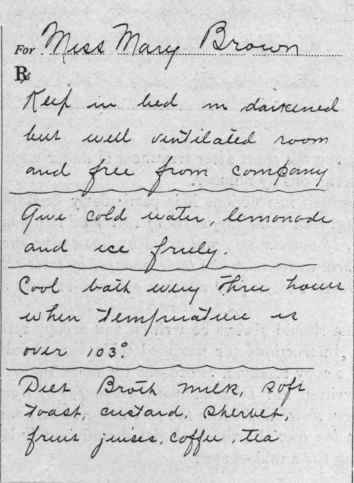 For Miss Mary Brown
℞
Keep in bed in darkened
but well ventilated room
and free from company
Give cold water, lemonade
and ice freely.
Cool bath every three hours
when temperature is
over 103°
Diet Broth milk, soft
toast, custard, sherbet,
fruit juices, coffee, tea